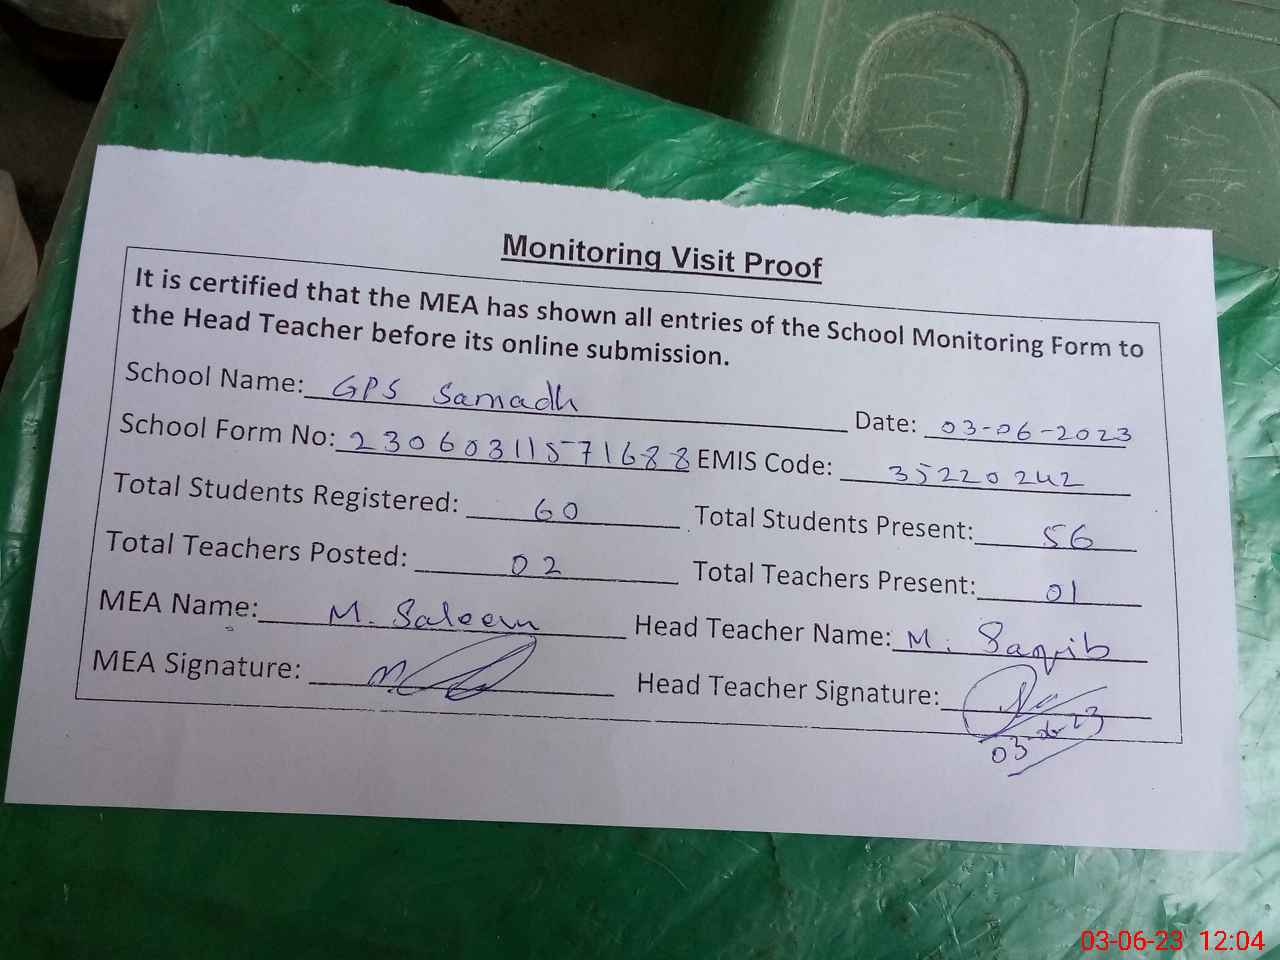 Monitoring Visit Proof
It is certified that the MEA has shown all entries of the School Monitoring Form to
the Head Teacher before its online submission.
School Name: GPS Samadh Date: 03-06-2023
School Form No: 23060311571688 EMIS Code: 35220242
Total Students Registered: 60 Total Students Present: 56
Total Teachers Posted: 02 Total Teachers Present: 01
MEA Name: M. Saleem Head Teacher Name: M. Saqib
MEA Signature: Head Teacher Signature:
03-06-23
03-06-23 12:04